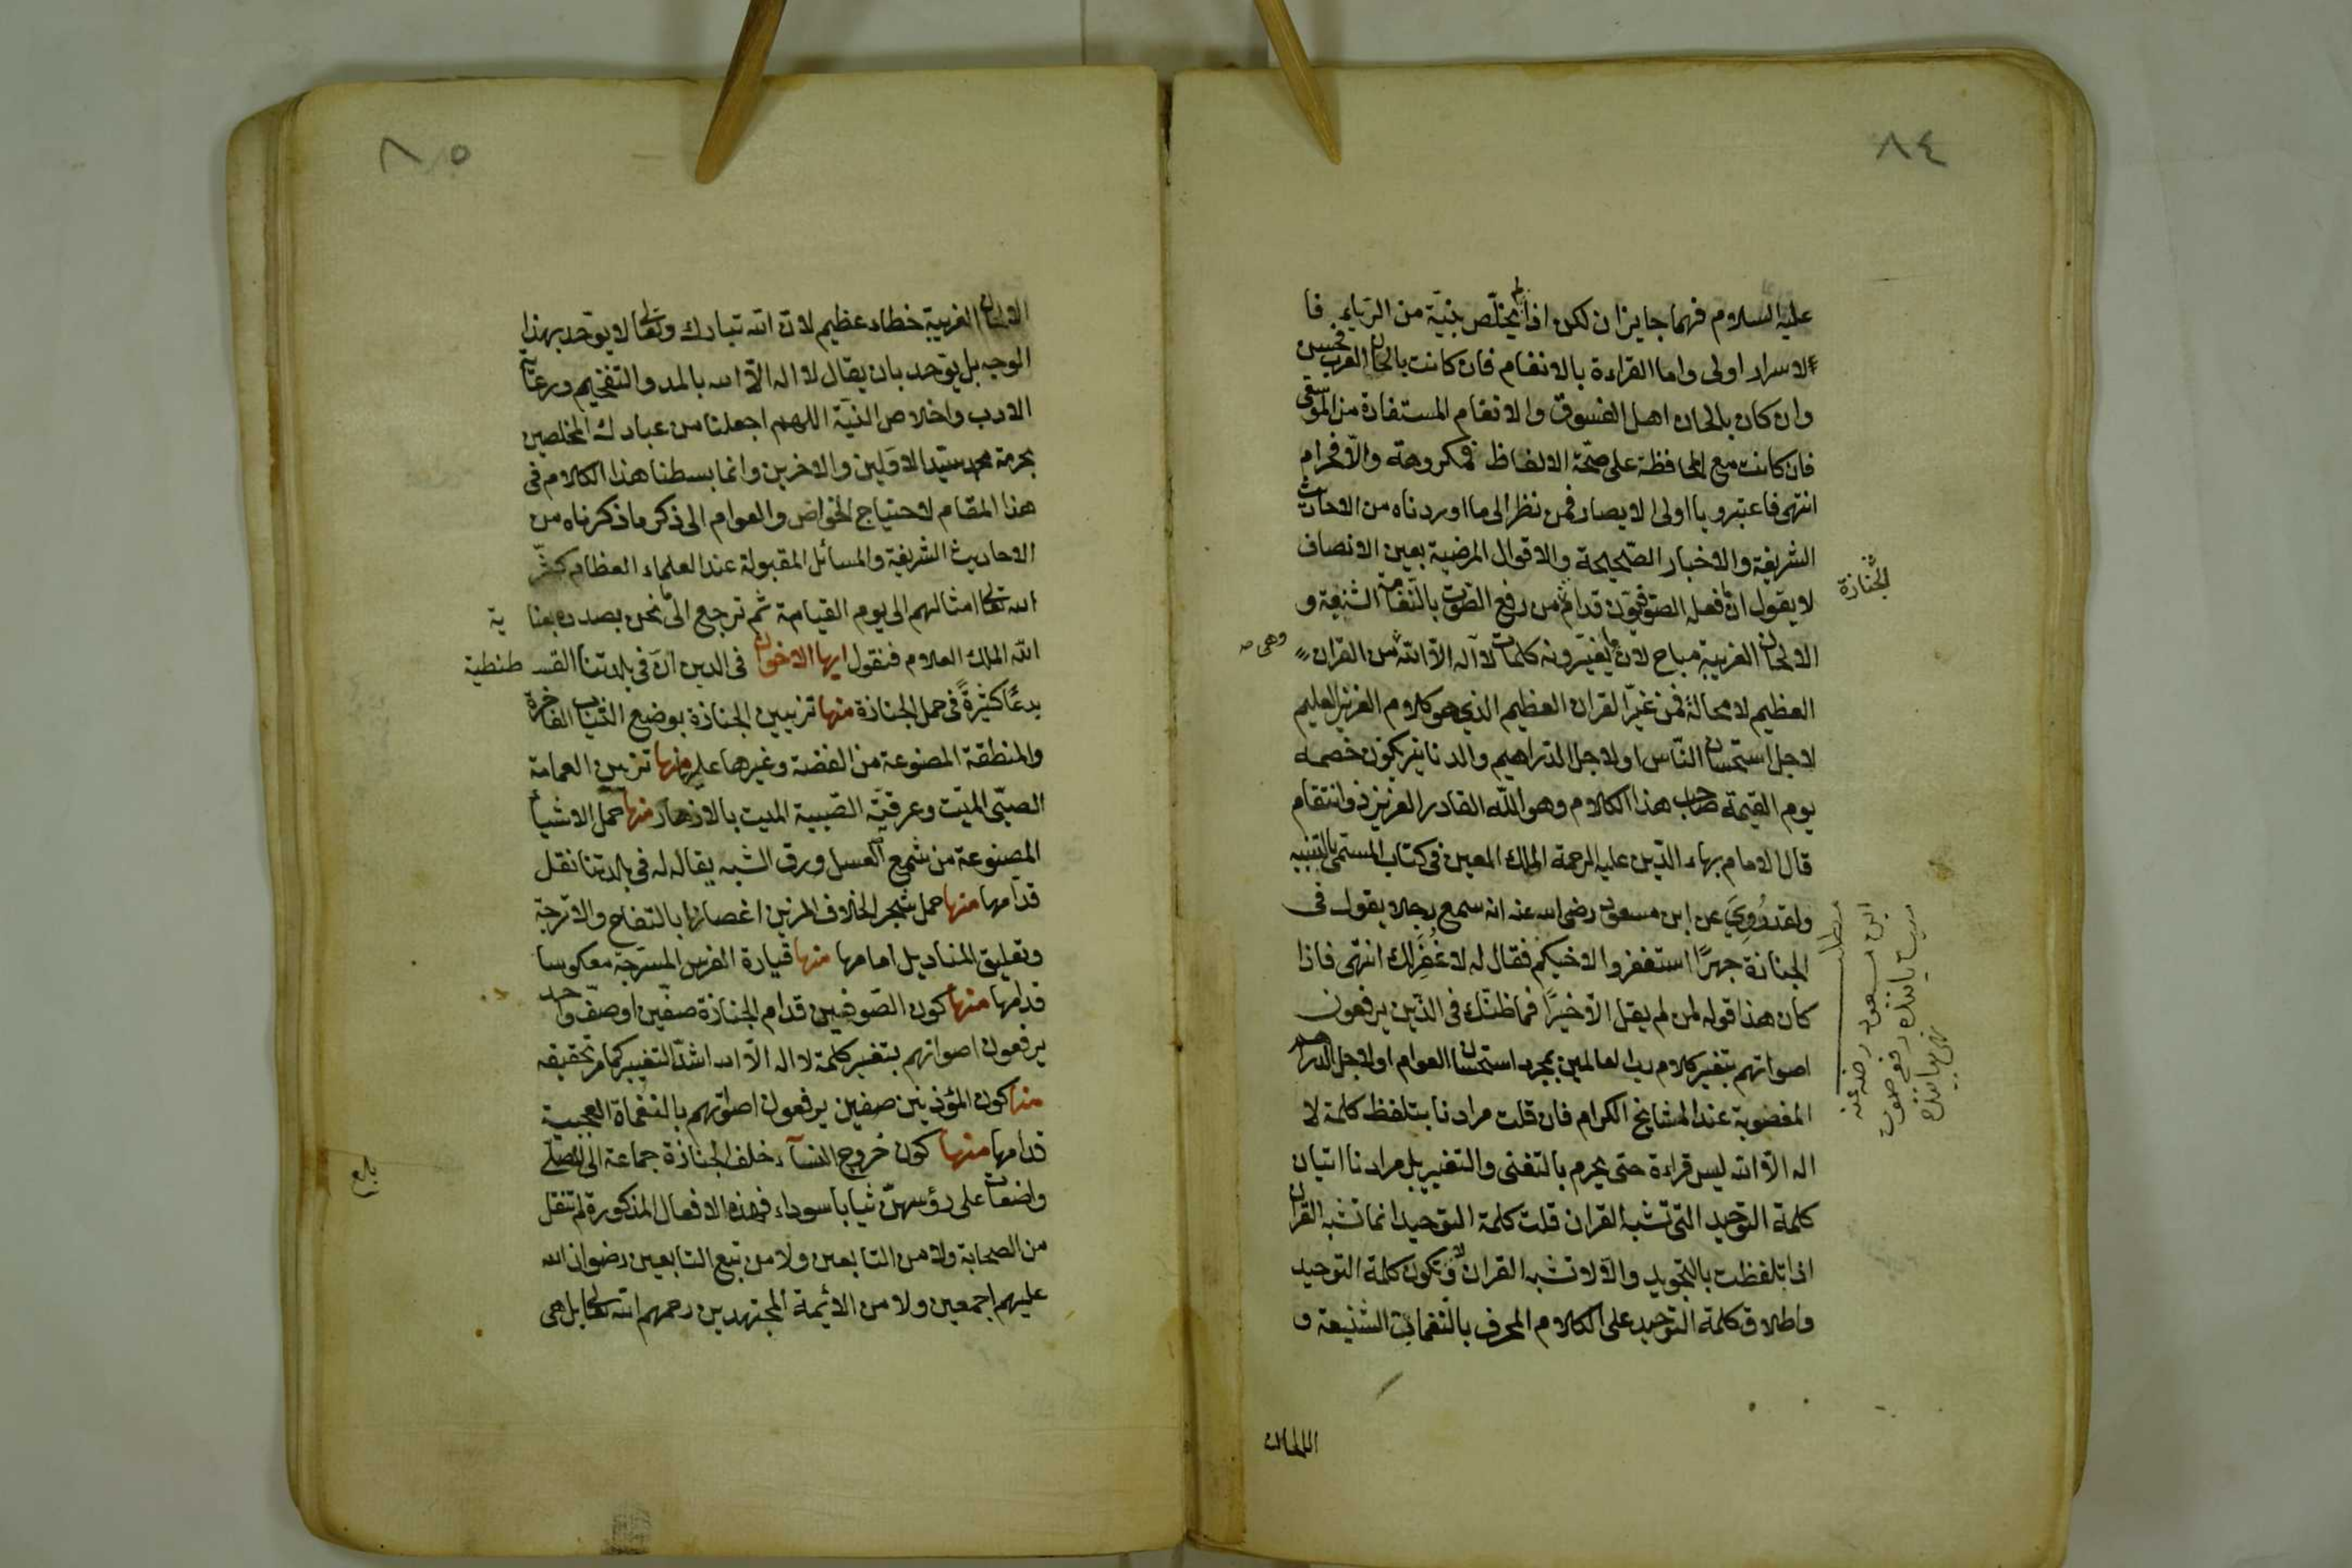 ٨٤
عليه السلام فهما جايزان لكن اذا لم يخلص بنيّة من الريا فا
لاسرار اولى واما القراءة بالانغام فان كانت بالحان العرب فحسن
وان كان بالحان اهل الفسوق والانغام المستفادة من الموسقى
فان كانت مع المحافظة على صحّة الالفاظ فمكروهة والّا فحرام
انتهى فاعتبروا يا اولى الابصار فمن نظر الى ما اوردناه من الاحاديث
الشريفة والاخبار الصّحيحة والاقوال المرضية بعين الانصاف
لا يقول ان فعل الصوفيّون قدام من رفع الصّوت بالنّغمات الشنيعة و
الجنازة
الالحان الغريبة مباح لان ما يغيّرونه كلمات لا اله الّا الله من القران
وهى
العظيم لا محالة فمن غيّر القران العظيم الذي هو كلام العزيز العليم
لاجل استحسان النّاس او لاجل الدّراهيم والدنانير يكون خصمه
يوم القيمة صاحب هذا الكلام وهو اللّه القادر العزيز ذو انتقام
قال الامام بهاء الدّين عليه الرحمة الملك المعين فى كتاب المسمّى بالتنبيه
ولقد رُوِيَ عن ابن مسعود رضى الله عنه انه سمع رجلا يقول فى
الجنازة جهرًا استغفروا لاخيكم فقال له لا غُفِرَ لك انتهى فاذا
كان هذا قوله لمن لم يقل الّا خيرًا فما ظنّك فى الّذين يرفعون
اصواتهم بتغير كلام رب العالمين بمجرد استحسان العوام او لاجل الدراهم
المغضوبة عند المشايخ الكرام فان قلت مرادنا بتلفظ كلمة لا
اله الّا الله ليس قراءة حتى يحرم بالتغنى والتغيير بل مرادنا اتيان
كلمة التوحيد التى تشبه القران قلت كلمة التوحيد انما تشبه القران
اذا تلفظت بالتجويد والّا لا تشبه القران ولا تكون كلمة التوحيد
واطلاق كلمة التوحيد على الكلام المحرف بالنّغمات الشنيعة و
الالحان
٨٥
الالحان الغريبة خطاء عظيم لان الله تبارك وتعالى لا يوحّد بهذا
الوجه بل يوحد بان يقال لا اله الّا الله بالمد والتفخيم ورعاية
الادب واخلاص النيّة اللهم اجعلنا من عبادك المخلصين
بحرمة محمد سيّد الاوّلين والاخرين وانما بسطنا هذا الكلام فى
هذا المقام لاحتياج الخواص والعوام الى ذكر ما ذكرناه من
الاحاديث الشريفة والمسائل المقبولة عند العلماء العظام كثّر
الله تعالى امثالهم الى يوم القيامة ثم نرجع الى ما نحن بصدده بعناية
اللّه الملك العلام فنقول ايها الاخوان فى الدين انّ فى بلدتنا القسطنطية
بدعًا كثيرةً فى حمل الجنازة منها تزيين الجنازة بوضع الثياب الفاخرة
والمنطقة المصنوعة من الفضة وغيرها عليها منها تزيين العمامة
الصبّى الميّت وعرقيّة الصّبية الميت بالازهار منها حمل الاشيأ
المصنوعة من شمع العسل وورق الشبه يقال له فى بلدتنا نقل
قدّامها منها حمل شجر الخلاف المزين اغصانها بالتفاح والاترجّة
وتعليق المناديل امامها منها قيادة الفرس المسرجة معكوسا
قدامها منها كون الصّوفيين قدام الجنازة صفّين او صفّ واحد
يرفعون اصواتهم بتغير كلمة لا اله الّا الله اشدّ التغيير كما مر تحقيقه
منها كون المؤذنين صفين يرفعون اصواتهم بالنغماة العجيبة
قدامها منها كون خروج النسآء خلف الجنازة جماعة الى المصلّى
واضعات على رؤسهنّ ثيابا سوداء فهذه الافعال المذكورة لم تنقل
من الصحابة ولا من التابعين ولا من تبع التابعين رضوان الله
عليهم اجمعين ولا من الائمة المجتهدين رحمهم الله تعالى بل هى